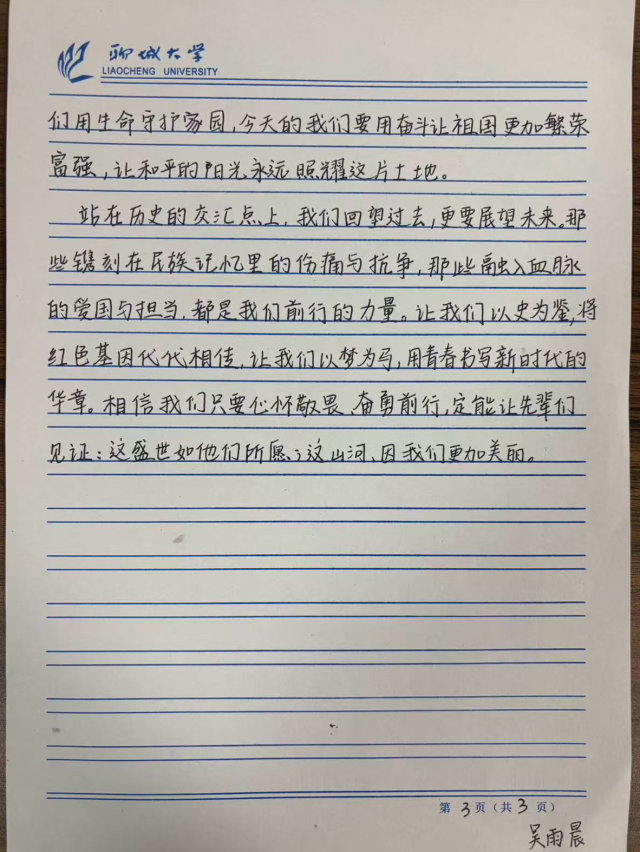 聊城大学
LIAOCHENG UNIVERSITY
们用生命守护家园,今天的我们要用奋斗让祖国更加繁荣
富强,让和平的阳光永远照耀这片土地。
站在历史的交汇点上,我们回望过去,更要展望未来。那
些镌刻在民族记忆里的伤痛与抗争,那些融入血脉
的爱国与担当,都是我们前行的力量。让我们以史为鉴,将
红色基因代代相传,让我们以梦为马,用青春书写新时代的
华章。相信我们只要心怀敬畏、奋勇前行,定能让先辈们
见证:这盛世如他们所愿;这山河,因我们更加美丽。
第 3 页(共 3 页)
吴雨晨